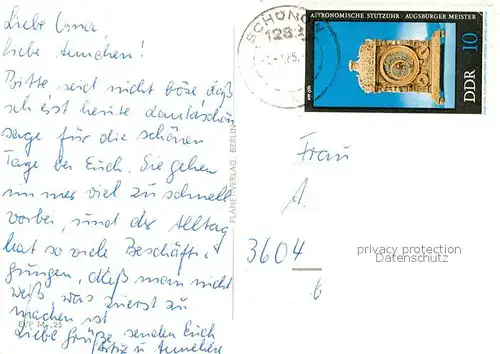 Liebe Oma,
liebe Annchen!
Bitte seid nicht böse, daß
ich erst heute dankeschön
sage für die schönen
Tage bei Euch. Sie gehen
immer viel zu schnell
vorbei, und der Alltag
hat so viele Beschäfti-
gungen, daß man nicht
weiß, was zuerst zu
machen ist
Liebe Grüße senden Euch
u.
EVP M -,25
PLANET-VERLAG, BERLIN
SCHÖN
128
ASTRONOMISCHE STUTZUHR · AUGSBURGER MEISTER
10
DDR
Frau
A.
3604
6
privacy protection
Datenschutz